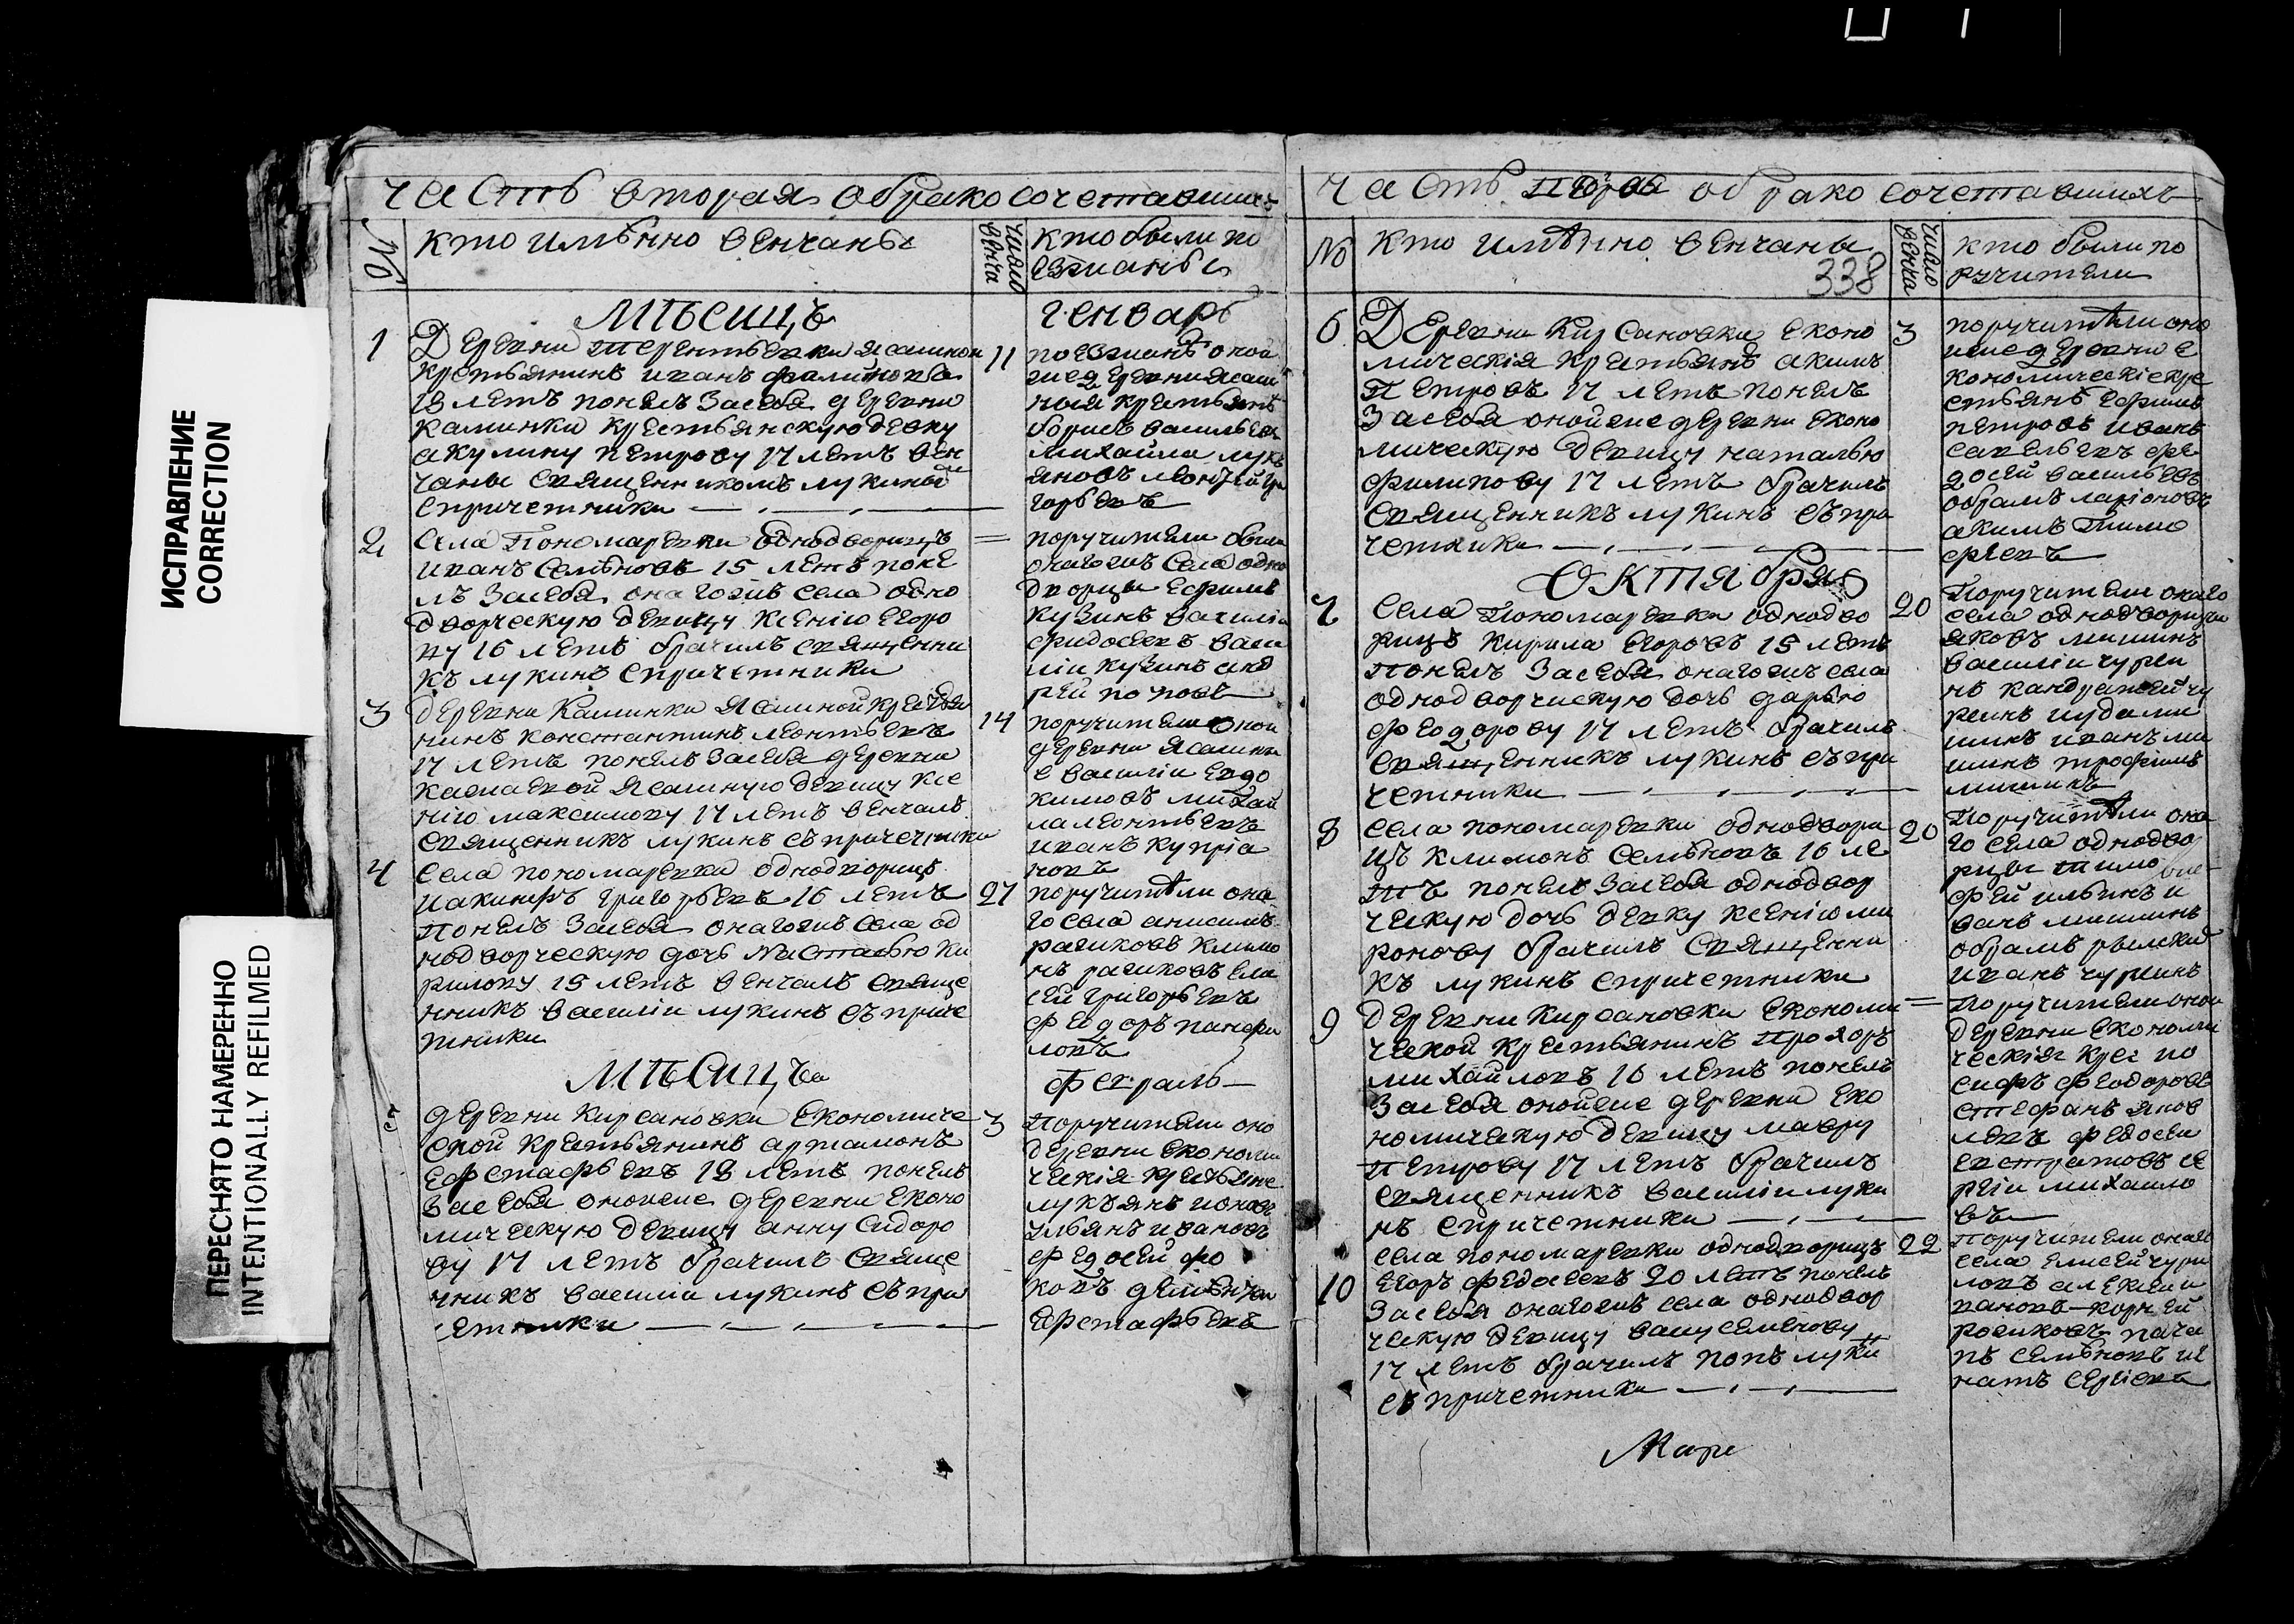 ИСПРАВЛЕНИЕ
CORRECTION
ПЕРЕСНЯТО НАМЕРЕННО
INTENTIONALLY REFILMED
часть вторая обрако сочетавши
№
кто имѣнно венчаны
число венча
кто были по
езжаны
мѣсицъ
генварь
1
Деревни Терентьевки ясашнои
крестьянинъ иванъ
18 летъ понелъ засебя деревни
каминки крестьянскую девку
акулину петрову 17 летъ вен
чаны священникомъ лукины
спричетники
11
поезжанѣ оной
же деревни ясаш
ныя крестьянѣ
борисъ васильев
михайла лукь
яновъ леонтей гри
горьевъ
2
села Пономаревки однодворицъ
иванъ семьновъ 15 летъ поне
лъ засебя онагожъ села одно
дворческую девицу ксенію егоро
ву 16 летъ брачилъ священни
къ лукинъ спричетники
=
поручители были
онагожъ села одно
дворцы ефимъ
кузинъ василіи
фидосеевъ васи
ліи кузинъ анд
рей поповъ
3
деревни Каминки ясашной крестья
нинъ константинъ леонтьевъ
17 летъ понелъ засебя деревни
ясашную девицу ксе
нію максимову 17 летъ венчалъ
священникъ лукинъ съпричетники
14
поручители оной
деревни ясашны
е василіи евдо
кимовъ михай
ла леонтьевъ
иванъ купріа
новъ
4
села пономаревки однодворицъ
иакинфъ григорьевъ 16 летъ
понелъ засебя онагожъ села од
нодворческую дочь Настасью ки
рилову 15 летъ венчалъ свяще
нникъ василіи лукинъ съприче
тники
27
поручители она
го села анисимъ
рашковъ климо
нъ рашковъ ели
сей григорьевъ
федоръ панфи
ловъ
мѣсицъ
февраль
5
деревни кирсановки економиче
ской крестьянинъ артамонъ
ефстафьевъ 18 летъ понелъ
засебя онойже деревни еконо
мическую девицу анну сидоро
ву 17 летъ брачилъ свяще
нникъ василіи лукинъ съпри
четники
3
Поручители оно
деревни економи
ческія крестьяне
лукъянъ ионовъ
ульянъ ивановъ
федосей фо
ковъ
ефстафьевъ
часть обрако сочетавшихъ
№
кто имѣнно венчаны
338
число венча
кто были по
ручители
6
Деревни Кирсановки еконо
мическія крестьянѣ акимъ
Петровъ 17 летъ понелъ
засебя онойже деревни еконо
мическую девицу наталью
филипову 17 летъ брачилъ
священникъ лукинъ съпри
четники
3
поручители оно
йже деревни е
кономическіе кре
стьянѣ ефимъ
петровъ иванъ
савельевъ фе
досей васильевъ
абрамъ ларіоновъ
акимъ тимо
феевъ
Октября
7
села Пономаревки однодво
рицъ кирила егоровъ 15 летъ
понелъ засебя онагожъ села
однодворческую дочь дарью
феодорову 17 летъ брачилъ
священникъ лукинъ съпри
четники
20
Поручители онаго
села однодворцы
яковъ мишинъ
василіи чурси
нъ кандратей чу
рсинъ
иванъ ми
шинъ трофимъ
мишинъ
8
села пономаревки однодвори
цъ климонъ семьновъ 16 ле
тъ понелъ засебя однодвор
ческую дочь девку ксенію ми
ронову брачилъ священни
къ лукинъ спричетники
20
Поручители она
го села однодво
рцы тимо
фей ильинъ и
ванъ мишинъ
абрамъ рыжкин
иванъ чурсинъ
9
деревни кирсановки економи
ческой крестьянинъ прохоръ
михайловъ 16 летъ понелъ
засебя онойже деревни еко
номическую девицу мавру
петрову 17 летъ брачилъ
священникъ василіи луки
нъ спричетники
=
Поручители оной
деревни економи
ческія крес ио
сифъ феодоровъ
стефанъ яков
левъ федосеи
евстратовъ се
ргіи михаило
въ
10
села пономаревки однодворицъ
егоръ федосеевъ 20 летъ понелъ
засебя онагожъ села однодвор
ческую девицу вasу семенову
17 летъ брачилъ попъ луки
съ причетники
22
Поручители онаго
села елисей чури
ловъ алексеи
пановъ корней
рошковъ пата
пъ семьновъ иг
натъ сергіевъ